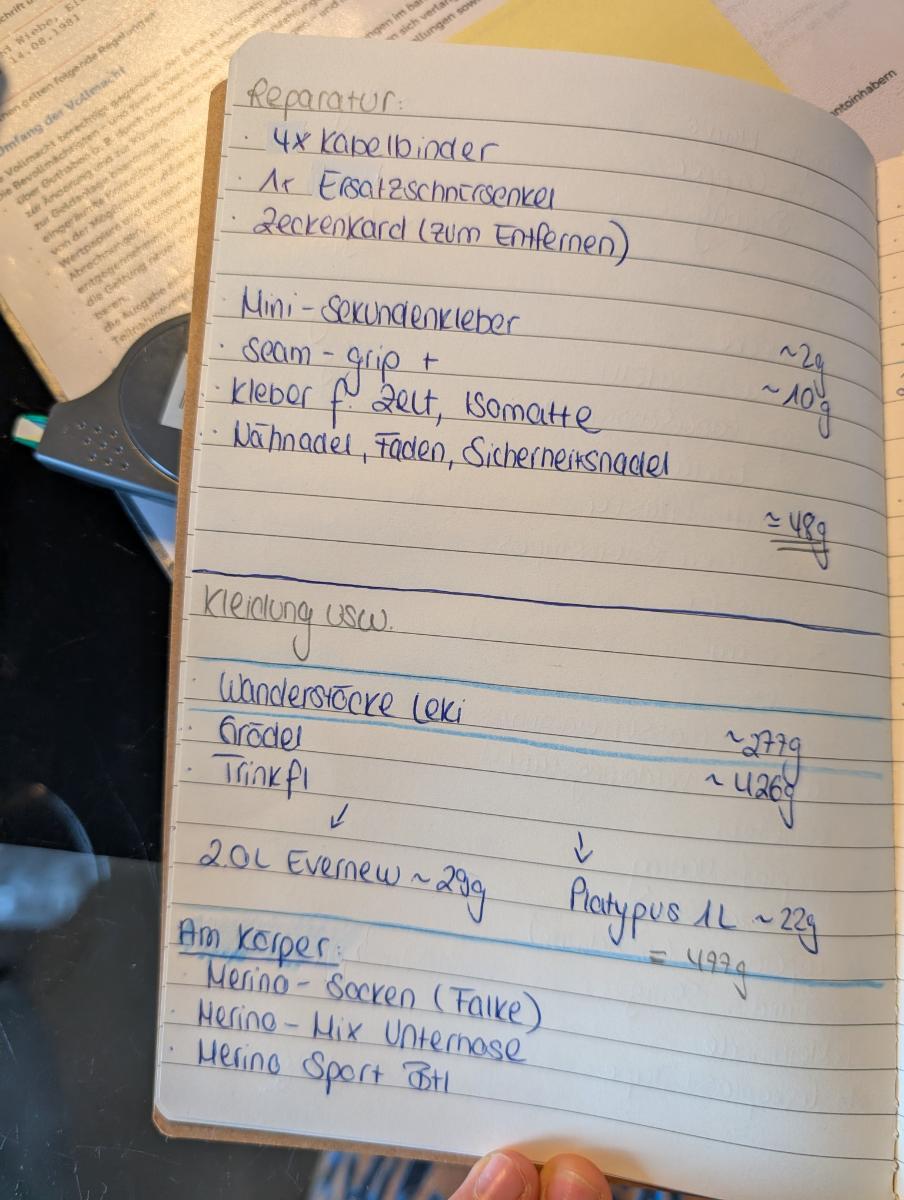 Reparatur:
· 4x Kabelbinder
· 1x Ersatzschnürsenkel
· Zeckenkard (zum Entfernen)
· Mini-Sekundenkleber ~2g
· Seam-grip + ~10g
· Kleber f. Zelt, Isomatte
· Nähnadel, Faden, Sicherheitsnadel
≃ 48g
Kleidung usw.
· Wanderstöcke Leki ~277g
· Grödel ~426g
· Trinkfl
↓ ↓
2.0L Evernew ~29g Platypus 1L ~22g
Am Körper: = 497g
· Merino-Socken (Falke)
· Merino-Mix Unterhose
· Merino Sport BH
14.08.1981
Umfang der Vollmacht
ontoinhabern